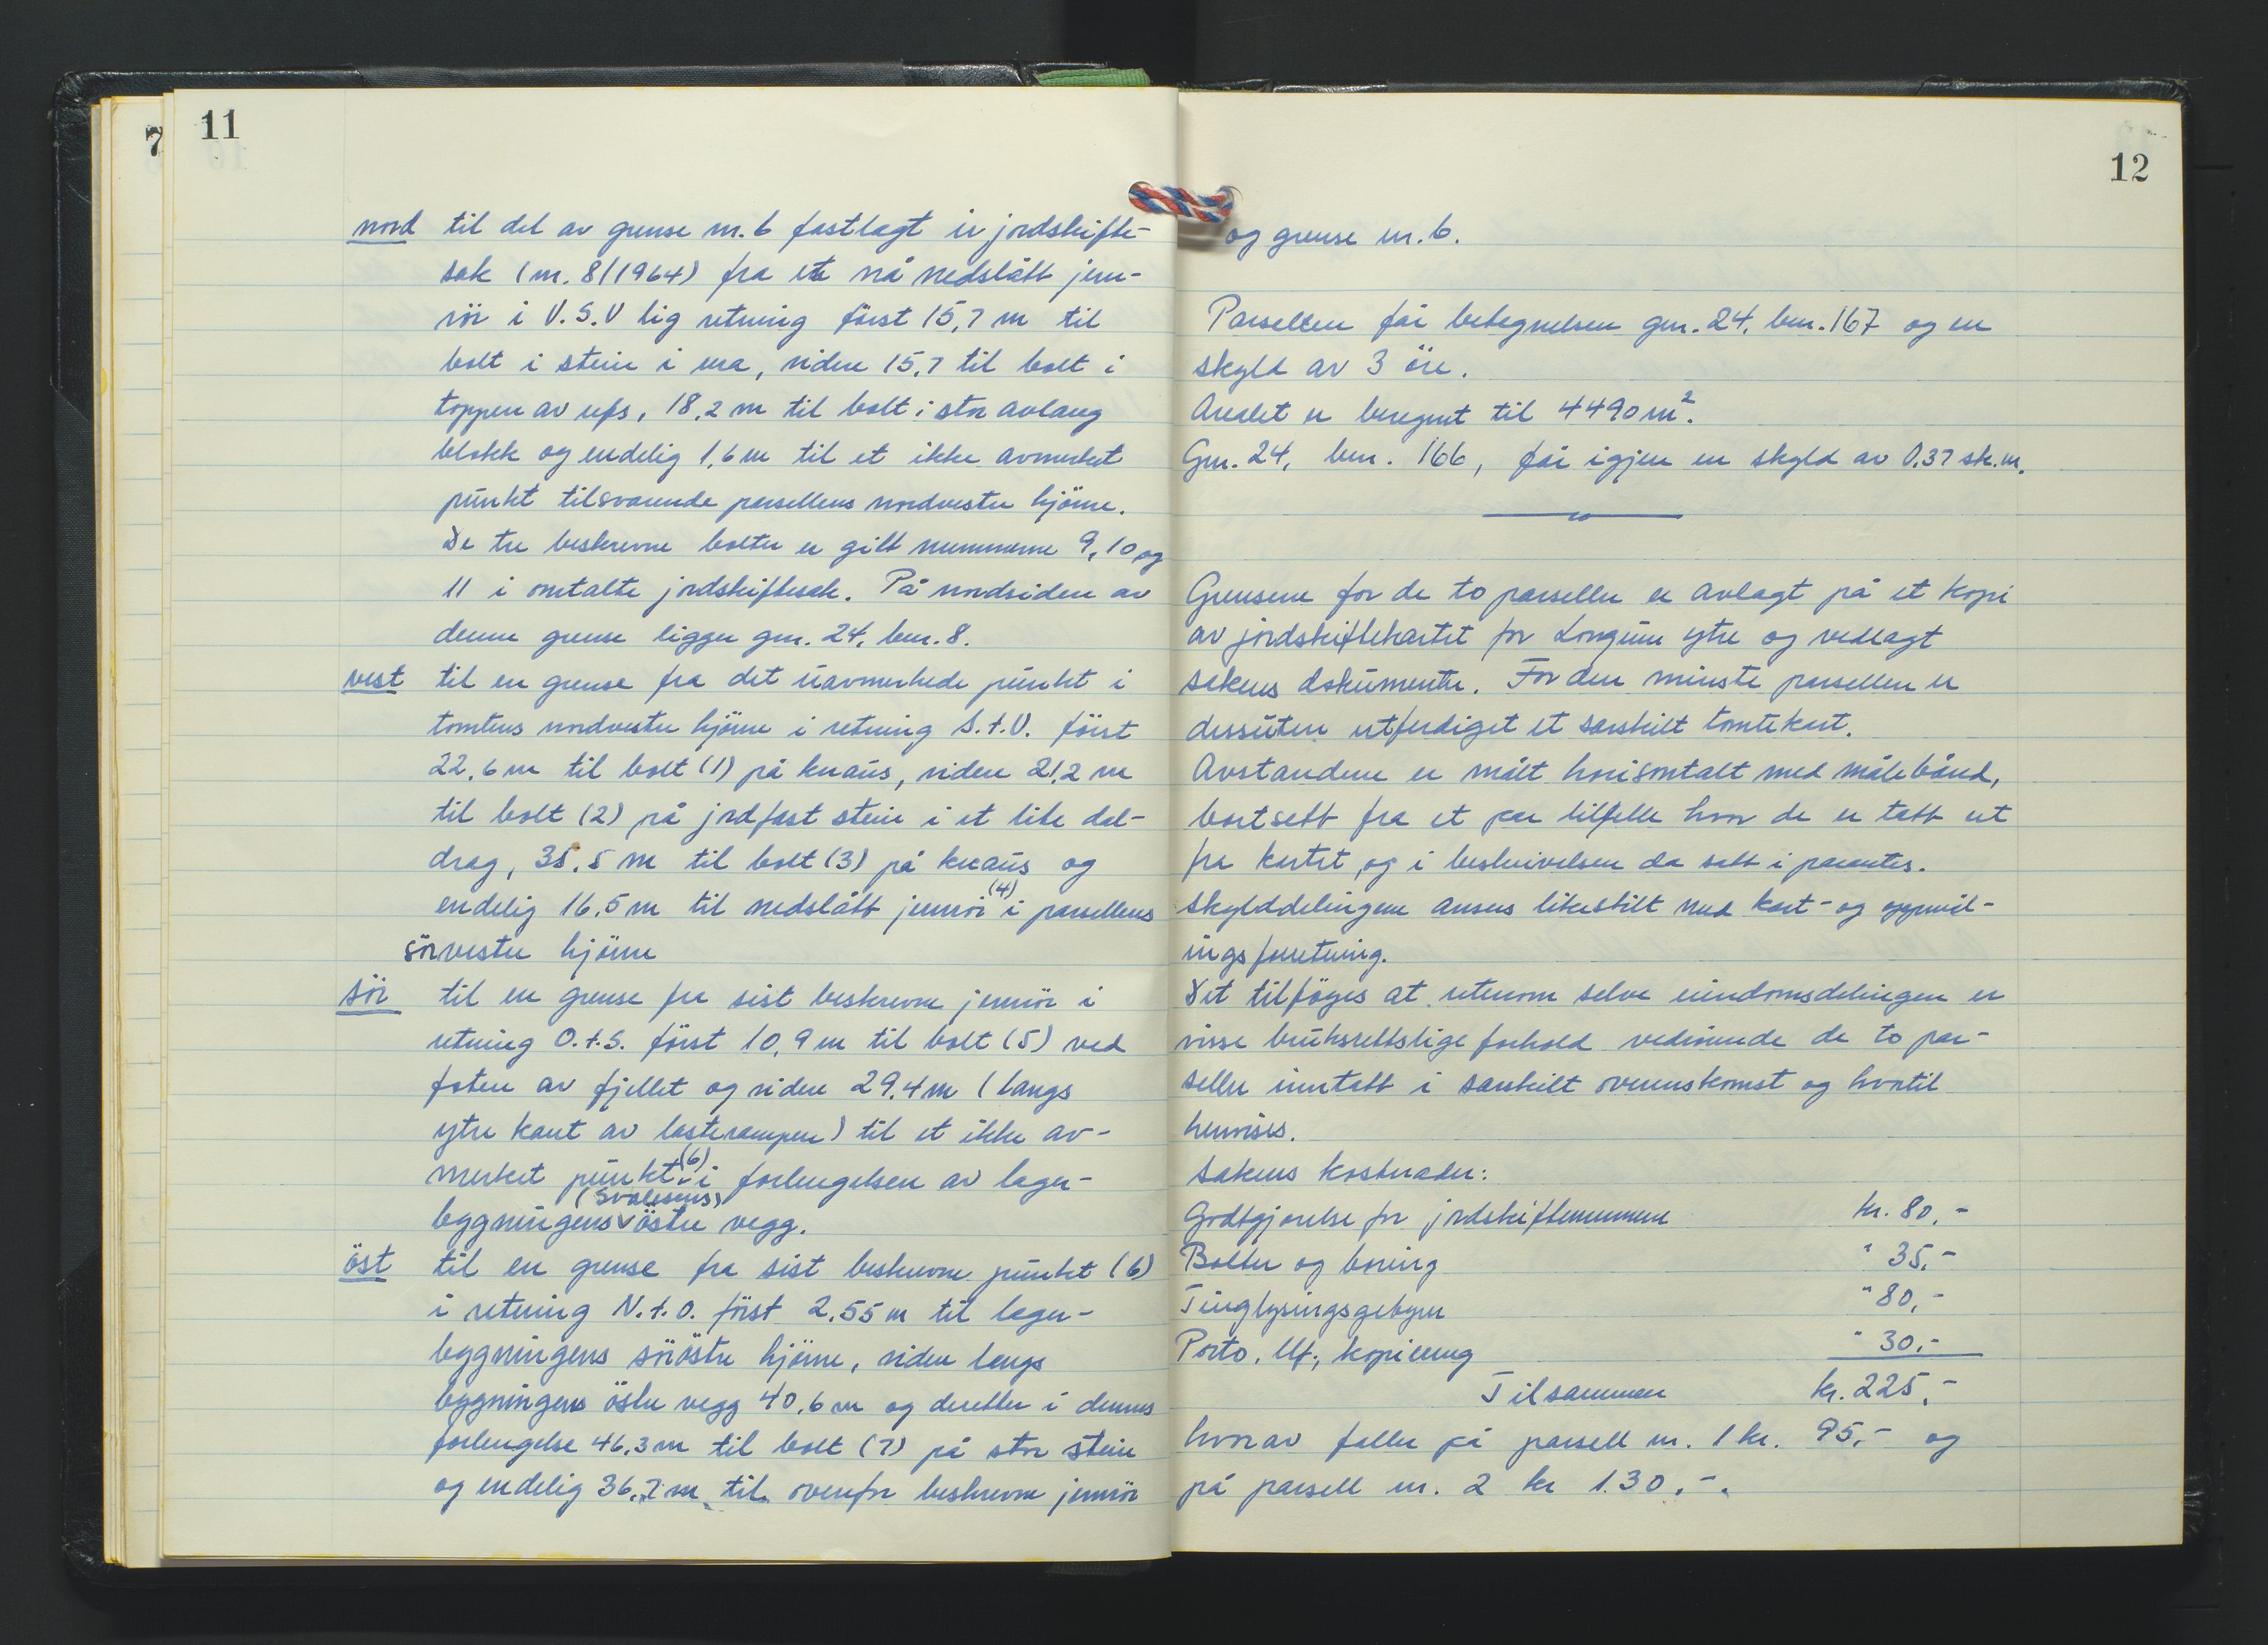 7
11
nord til del av grense nr. 6 fastlagt i jordskifte-
sak (nr. 8/1964) fra et nå nedslått jern-
rör i V.S.V lig retning först 15,7 m til
bolt i stein i ura, viden 15,7 til bolt i
toppen av ufs, 18,2 m til bolt i stor avlang
blokk og endelig 1,6 m til et ikke avmerket
punkt tilsvarende parsellens nordvestre hjörne.
De tre beskrevne bolter er gitt nummerne 9, 10 og
11 i omtalte jordskiftesak. På nordsiden av
denne grense ligger gnr. 24, bnr. 8.
vest til en grense fra det uavmerkede punkt i
tomtens nordvestre hjörne i retning S.t.V. först
22,6 m til bolt (1) på knaus, viden 21,2 m
til bolt (2) på jordfast stein i et lite dal-
drag, 35,5 m til bolt (3) på knaus og
endelig 16,5 m til nedslått jernrör (4) i parsellens
sörvestre hjörne
sör til en grense fra sist beskrevne jernrör i
retning O.t.S. först 10,9 m til bolt (5) ved
foten av fjellet og viden 29,4 m (langs
ytre kant av lasterampen) til et ikke av-
merket punkt (6) i forlengelsen av lager-
bygningens (Svalesens) östre vegg.
öst til en grense fra sist beskrevne punkt (6)
i retning N.t.O. först 2,55 m til lager-
bygningens söröstre hjörne, viden langs
bygningens östre vegg 40,6 m og deretter i dennes
forlengelse 46,3 m til bolt (7) på stor stein
og endelig 36,7 m til ovenfor beskrevne jernrör
12
og grense nr. 6.
Parsellen får betegnelsen gnr. 24, bnr. 167 og en
skyld av 3 öre.
Arealet er beregnet til 4490 m².
Gnr. 24, bnr. 166, får igjen en skyld av 0.37 sk.m.
Grensene for de to parseller er avlagt på et kopi
av jordskiftekartet for Longum ytre og vedlagt
sakens dokumenter. For den minste parsellen er
dessuten utferdiget et särskilt tomtekart.
Avstandene er målt horisontalt med målebånd,
bortsett fra et par tilfelle hvor de er tatt ut
fra kartet, og i beskrivelsen da satt i parantes.
Skylddelingene anses likestilt med kart- og oppmål-
ingsforretning.
Det tilföyes at utenom selve eiendomsdelingen er
visse bruksrettslige forhold vedrörende de to par-
seller inntatt i särskilt overenskomst og hvortil
henvises.
Sakens kostnader:
Godtgjörelse for jordskiftemennene kr. 80,-
Bolter og boring " 35,-
Tinglysingsgebyrer " 80,-
Porto, tlf., kopiering " 30,-
Tilsammen kr. 225,-
hvorav faller på parsell nr. 1 kr. 95,- og
på parsell nr. 2 kr 130,-.